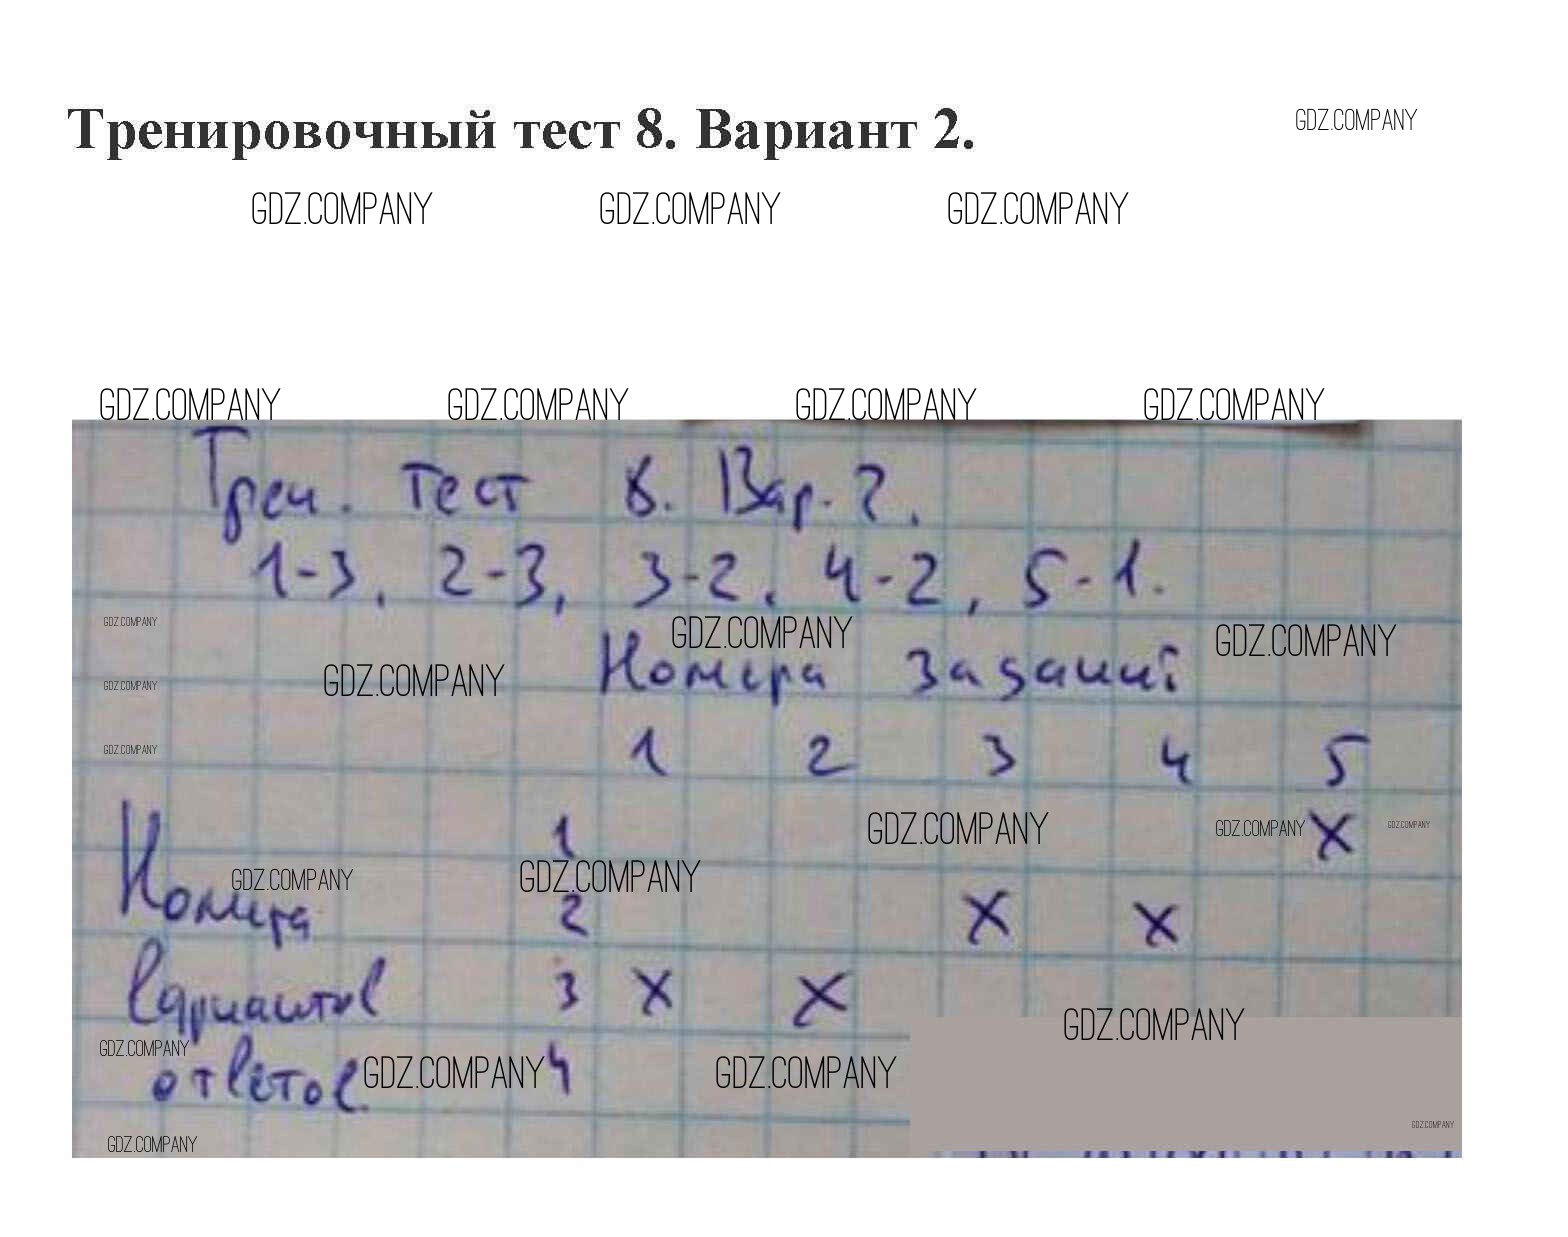 Тренировочный тест 8. Вариант 2.
GDZ.COMPANY
GDZ.COMPANY GDZ.COMPANY GDZ.COMPANY
GDZ.COMPANY GDZ.COMPANY GDZ.COMPANY GDZ.COMPANY
Трен. тест 8. Вар. 2.
1-3, 2-3, 3-2, 4-2, 5-1.
GDZ.COMPANY GDZ.COMPANY GDZ.COMPANY
Номера заданий
GDZ.COMPANY GDZ.COMPANY
1 2 3 4 5
GDZ.COMPANY
1 X
GDZ.COMPANY GDZ.COMPANY GDZ.COMPANY
GDZ.COMPANY GDZ.COMPANY
Номера 2 X X
вариантов 3 X X
GDZ.COMPANY
GDZ.COMPANY
ответов. 4
GDZ.COMPANY GDZ.COMPANY
GDZ.COMPANY
GDZ.COMPANY